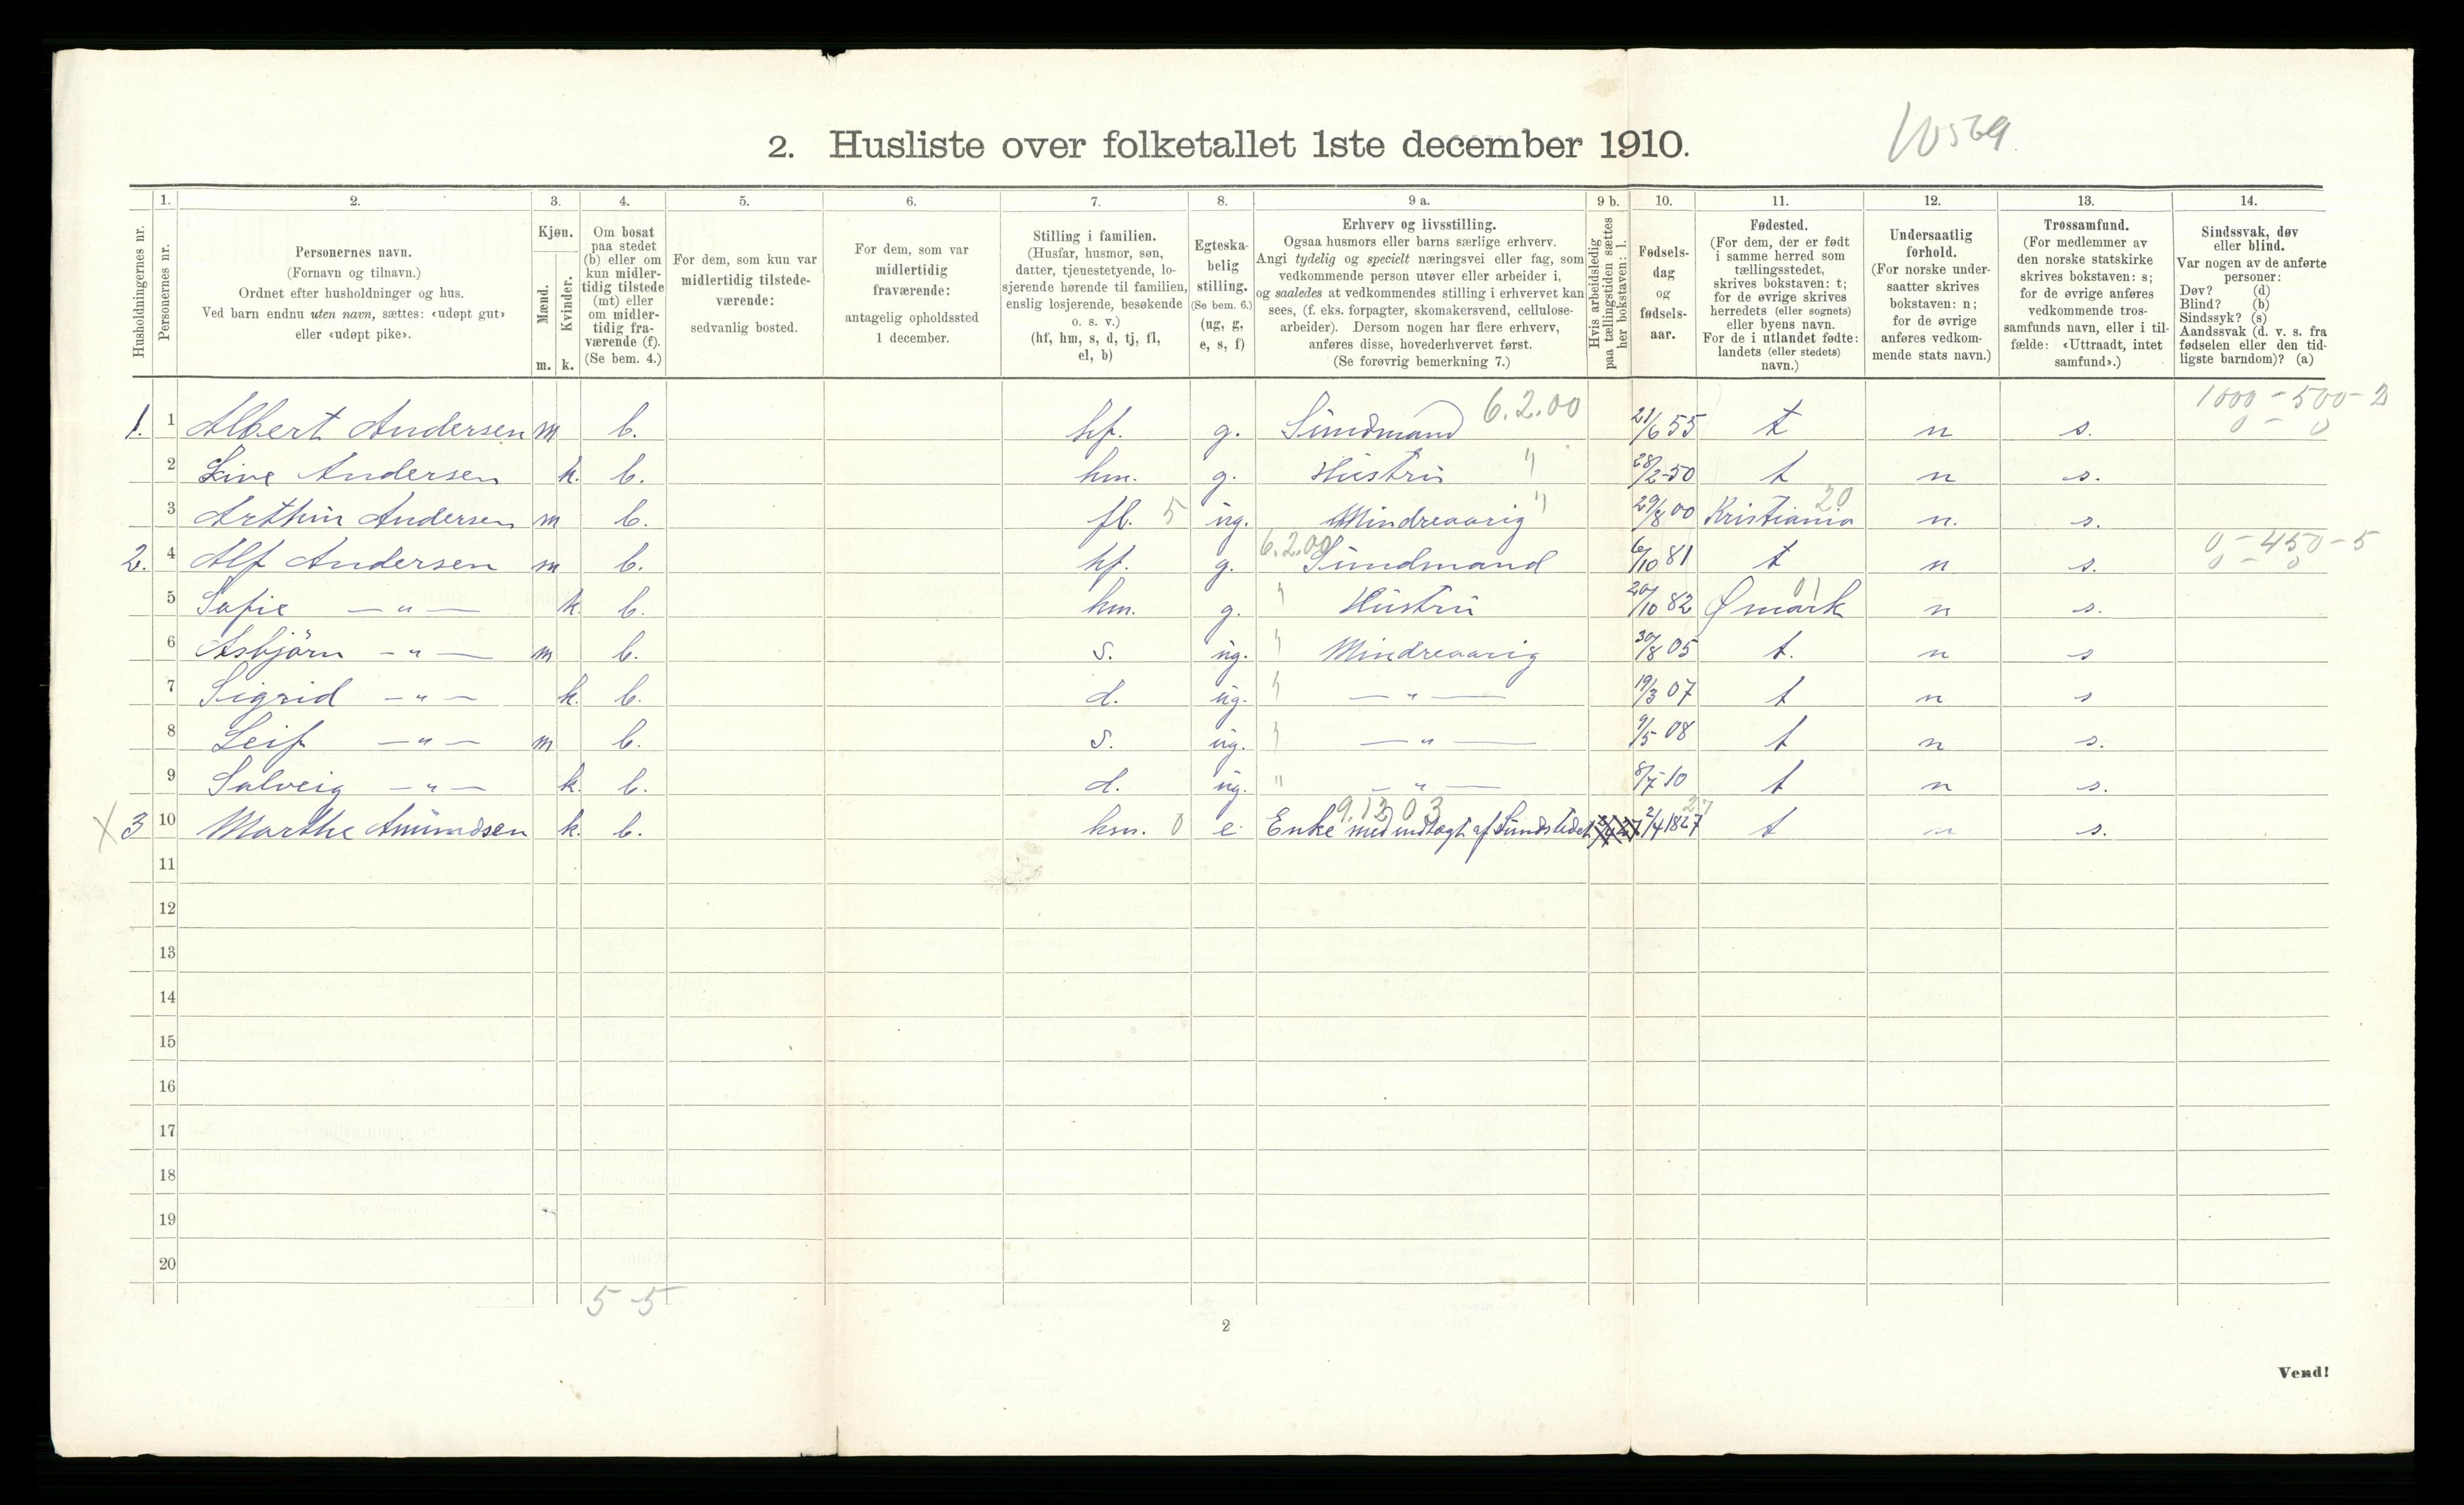 2. Husliste over folketallet 1ste december 1910.
10569
1. 2. 3. 4. 5. 6. 7. 8. 9 a. 9 b. 10. 11. 12. 13. 14.
Husholdningernes nr.
Personernes nr.
Personernes navn.
(Fornavn og tilnavn.)
Ordnet efter husholdninger og hus.
Ved barn endnu uten navn, sættes: «udøpt gut»
eller «udøpt pike».
Kjøn.
Mænd.
Kvinder.
m. k.
Om bosat
paa stedet
(b) eller om
kun midler-
tidig tilstede
(mt) eller
om midler-
tidig fra-
værende (f).
(Se bem. 4.)
For dem, som kun var
midlertidig tilstede-
værende:
sedvanlig bosted.
For dem, som var
midlertidig
fraværende:
antagelig opholdssted
1 december.
Stilling i familien.
(Husfar, husmor, søn,
datter, tjenestetyende, lo-
sjerende hørende til familien,
enslig losjerende, besøkende
o. s. v.)
(hf, hm, s, d, tj, fl,
el, b)
Egteska-
belig
stilling.
(Se bem. 6.)
(ug, g,
e, s, f)
Erhverv og livsstilling.
Ogsaa husmors eller barns særlige erhverv.
Angi tydelig og specielt næringsvei eller fag, som
vedkommende person utøver eller arbeider i,
og saaledes at vedkommendes stilling i erhvervet kan
sees, (f. eks. forpagter, skomakersvend, cellulose-
arbeider). Dersom nogen har flere erhverv,
anføres disse, hovederhvervet først.
(Se forøvrig bemerkning 7.)
Hvis arbeidsledig
paa tællingstiden sættes
her bokstaven: l.
Fødsels-
dag
og
fødsels-
aar.
Fødested.
(For dem, der er født
i samme herred som
tællingsstedet,
skrives bokstaven: t;
for de øvrige skrives
herredets (eller sognets)
eller byens navn.
For de i utlandet fødte:
landets (eller stedets)
navn.)
Undersaatlig
forhold.
(For norske under-
saatter skrives
bokstaven: n;
for de øvrige
anføres vedkom-
mende stats navn.)
Trossamfund.
(For medlemmer av
den norske statskirke
skrives bokstaven: s;
for de øvrige anføres
vedkommende tros-
samfunds navn, eller i til-
fælde: «Uttraadt, intet
samfund».)
Sindssvak, døv
eller blind.
Var nogen av de anførte
personer:
Døv? (d)
Blind? (b)
Sindssyk? (s)
Aandssvak (d. v. s. fra
fødselen eller den tid-
ligste barndom)? (a)
6.2.00 1000 - 500 - 2
1. 1 Albert Andersen m b. hf. g. Sundmand 21/6 55 t n s. 0 - 0
2 Live Andersen k. b. hm. g. Hustru " 28/2-50 t n s.
3 Arthur Andersen m b. fl. 5 ug. Mindreaarig " 29/8 00 Kristiania 20 n. s.
2. 4 Alf Andersen m b. hf. g. 6.2.00 Sundmand 6/10 81 t n s. 0 - 450 - 5
0 - 0
5 Sofie — " — k. b. hm. g. " Hustru 20/10 82 Ømark 01 n s.
6 Asbjörn — " — m b. s. ug. " Mindreaarig 30/8 05 t. n s
7 Sigrid — " — k. b. d. ug. " — " — 19/3 07 t n s
8 Leif — " — m b. s. ug. " — " — 9/5 08 t n s.
9 Solveig — " — k. b. d. ug. " — " — 8/7-10 t n s.
9.12 03 27
X 3 10 Marthe Amundsen k. b. hm. 0 e Enke med undtægt af Sundstedet 2/4 1827 t n s.
11
12
13
14
15
16
17
18
19
20
5-5
2
Vend!